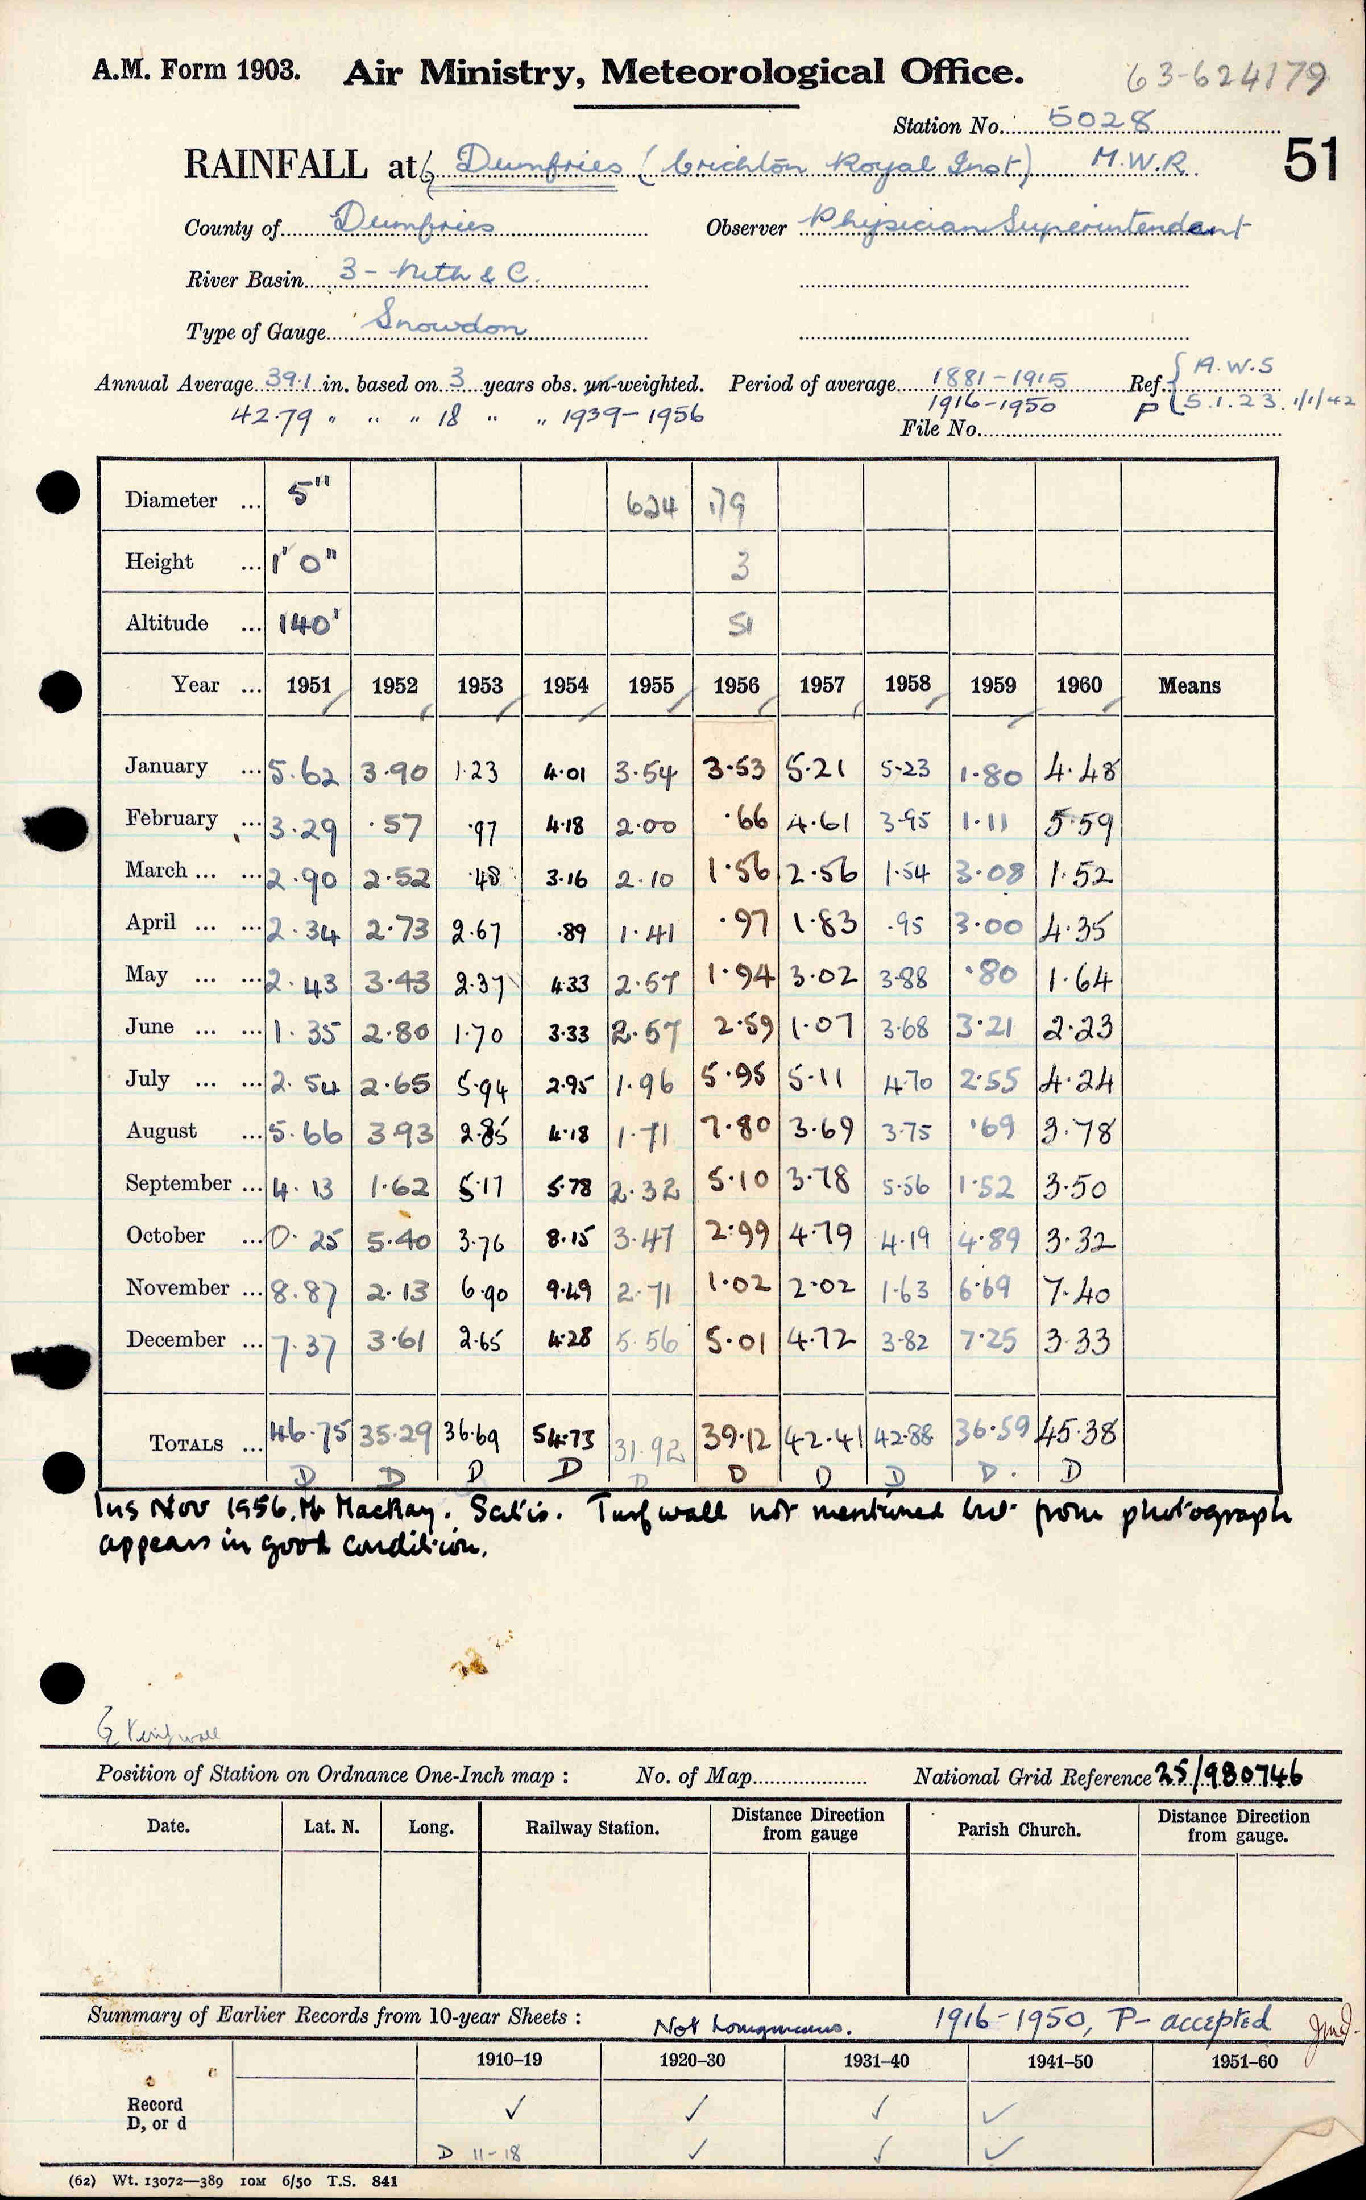 A.M. Form 1903. Air Ministry, Meteorological Office. 63-624179
Station No. 5028
RAINFALL at Dumfries (Crichton Royal Inst) M.W.R. 51
County of Dumfries Observer Physician Superintendent
River Basin 3 - Nith & C.
Type of Gauge Snowdon
Annual Average 39.1 in. based on 3 years obs. un-weighted. Period of average 1881-1915 Ref. { A.W.S
42.79 " " " 18 " " 1939-1956 1916-1950 P 5.1.23. 1/1/42
File No.
Diameter ... 5" 624 179
Height ... 1' 0" 3
Altitude ... 140' 51
Year ... 1951 1952 1953 1954 1955 1956 1957 1958 1959 1960 Means
January ... 5.62 3.90 1.23 4.01 3.54 3.53 5.21 5.23 1.80 4.48
February ... 3.29 .57 .97 4.18 2.00 .66 4.61 3.95 1.11 5.59
March ... ... 2.90 2.52 .48 3.16 2.10 1.56 2.56 1.54 3.08 1.52
April ... ... 2.34 2.73 2.67 .89 1.41 .97 1.83 .95 3.00 4.35
May ... ... 2.43 3.43 2.37 4.33 2.57 1.94 3.02 3.88 .80 1.64
June ... ... 1.35 2.80 1.70 3.33 2.57 2.59 1.07 3.68 3.21 2.23
July ... ... 2.54 2.65 5.94 2.95 1.96 5.95 5.11 4.70 2.55 4.24
August ... 5.66 3.93 2.85 4.18 1.71 7.80 3.69 3.75 .69 3.78
September ... 4.13 1.62 5.17 5.78 2.32 5.10 3.78 5.56 1.52 3.50
October ... 0.25 5.40 3.76 8.15 3.47 2.99 4.79 4.19 4.89 3.32
November ... 8.87 2.13 6.90 9.49 2.71 1.02 2.02 1.63 6.69 7.40
December ... 7.37 3.61 2.65 4.28 5.56 5.01 4.72 3.82 7.25 3.33
TOTALS ... 46.75 35.29 36.69 54.73 31.92 39.12 42.41 42.88 36.59 45.38
D D D D D D D D D. D
Ins Nov 1956. Mr MacKay. Satis. Turf wall not mentioned but from photograph
appears in good condition.
Turf wall
Position of Station on Ordnance One-Inch map : No. of Map National Grid Reference 25/980746
Date. Lat. N. Long. Railway Station. Distance Direction from gauge Parish Church. Distance Direction from gauge.
Summary of Earlier Records from 10-year Sheets : Not homogeneous. 1916-1950, P- accepted
1910-19 1920-30 1931-40 1941-50 1951-60
Record ✓ ✓ ✓ ✓
D, or d D 11-18 ✓ ✓ ✓
(62) Wt. 13072—389 10M 6/50 T.S. 841